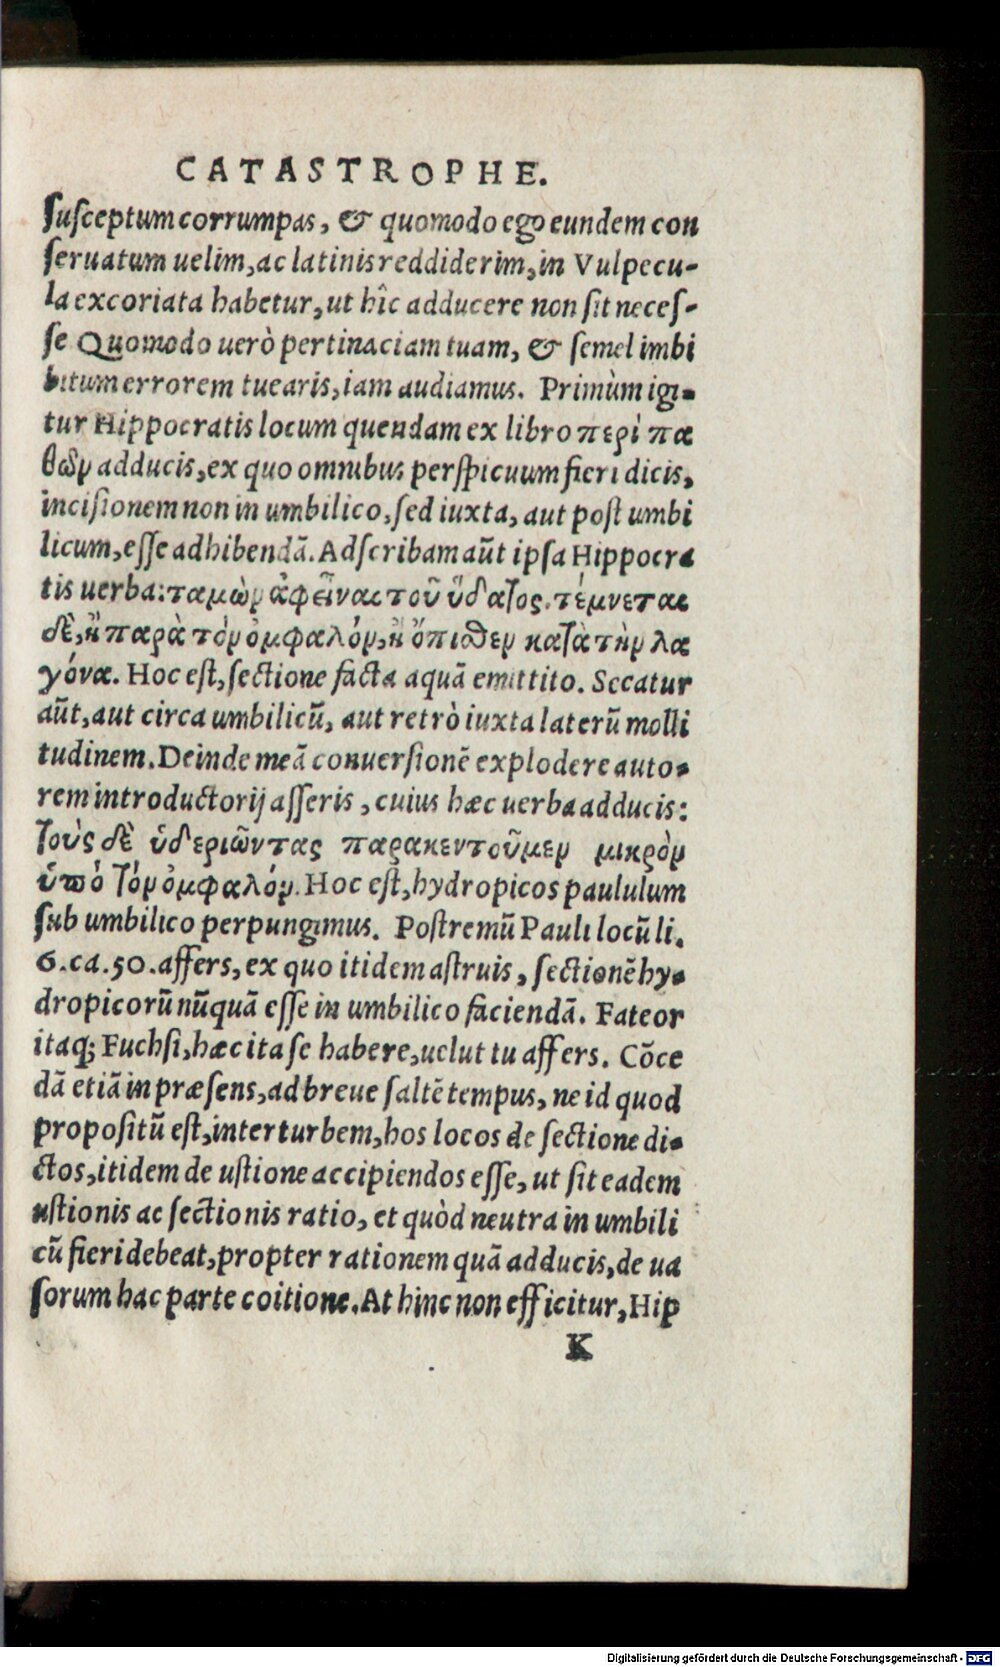 CATASTROPHE.
ſuſceptum corrumpas, & quomodo ego eundem con
ſeruatum uelim, ac latinis reddiderim, in Vulpecu-
la excoriata habetur, ut hîc adducere non ſit neceſ-
ſe Quomodo uerò pertinaciam tuam, & ſemel imbi
bitum errorem tuearis, iam audiamus. Primùm igi-
tur Hippocratis locum quendam ex libro περὶ πα
θῶν adducis, ex quo omnibus perſpicuum fieri dicis,
inciſionem non in umbilico, ſed iuxta, aut poſt umbi
licum, eſſe adhibendā. Adſcribam aūt ipſa Hippocra
tis uerba: ταμὼν ἀφεῖναι τοῦ ὕδατος. τέμνεται
δὲ, ἢ παρὰ τὸν ὀμφαλόν, ἢ ὄπισθεν κατὰ τὴν λα
γόνα. Hoc eſt, ſectione facta aquā emittito. Secatur
aūt, aut circa umbilicū, aut retrò iuxta laterū molli
tudinem. Deinde meā conuerſionē explodere auto-
rem introductorij aſſeris, cuius hæc uerba adducis:
τοὺς δὲ ὑδεριῶντας παρακεντοῦμεν μικρὸν
ὑπὸ τὸν ὀμφαλόν. Hoc eſt, hydropicos paululum
ſub umbilico perpungimus. Poſtremū Pauli locū li.
6. ca. 50. affers, ex quo itidem aſtruis, ſectionē hy-
dropicorū nūquā eſſe in umbilico faciendā. Fateor
itaq; Fuchſi, hæc ita ſe habere, uelut tu affers. Cōce
dā etiā in præſens, ad breue ſaltē tempus, ne id quod
propoſitū eſt, interturbem, hos locos de ſectione di-
ctos, itidem de uſtione accipiendos eſſe, ut ſit eadem
uſtionis ac ſectionis ratio, et quòd neutra in umbili
cū fieri debeat, propter rationem quā adducis, de ua
ſorum hac parte coitione. At hinc non efficitur, Hip
K
Digitalisierung gefördert durch die Deutsche Forschungsgemeinschaft - DFG